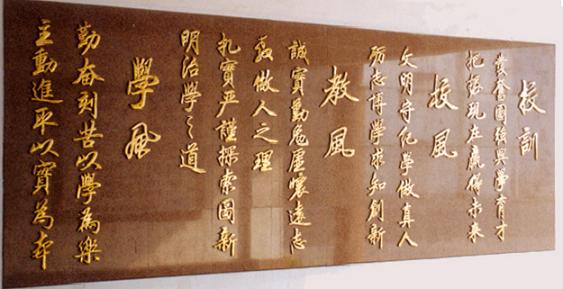 校訓
發奮圖強興學育才
把握現在贏得未來
校風
文明守紀學做真人
勵志博學求知創新
教風
誠實勤勉虛懷遠志
做人之理
扎實严謹探索圖新
明治學之道
學風
勤奋刻苦以學為樂
主動進取以實為本